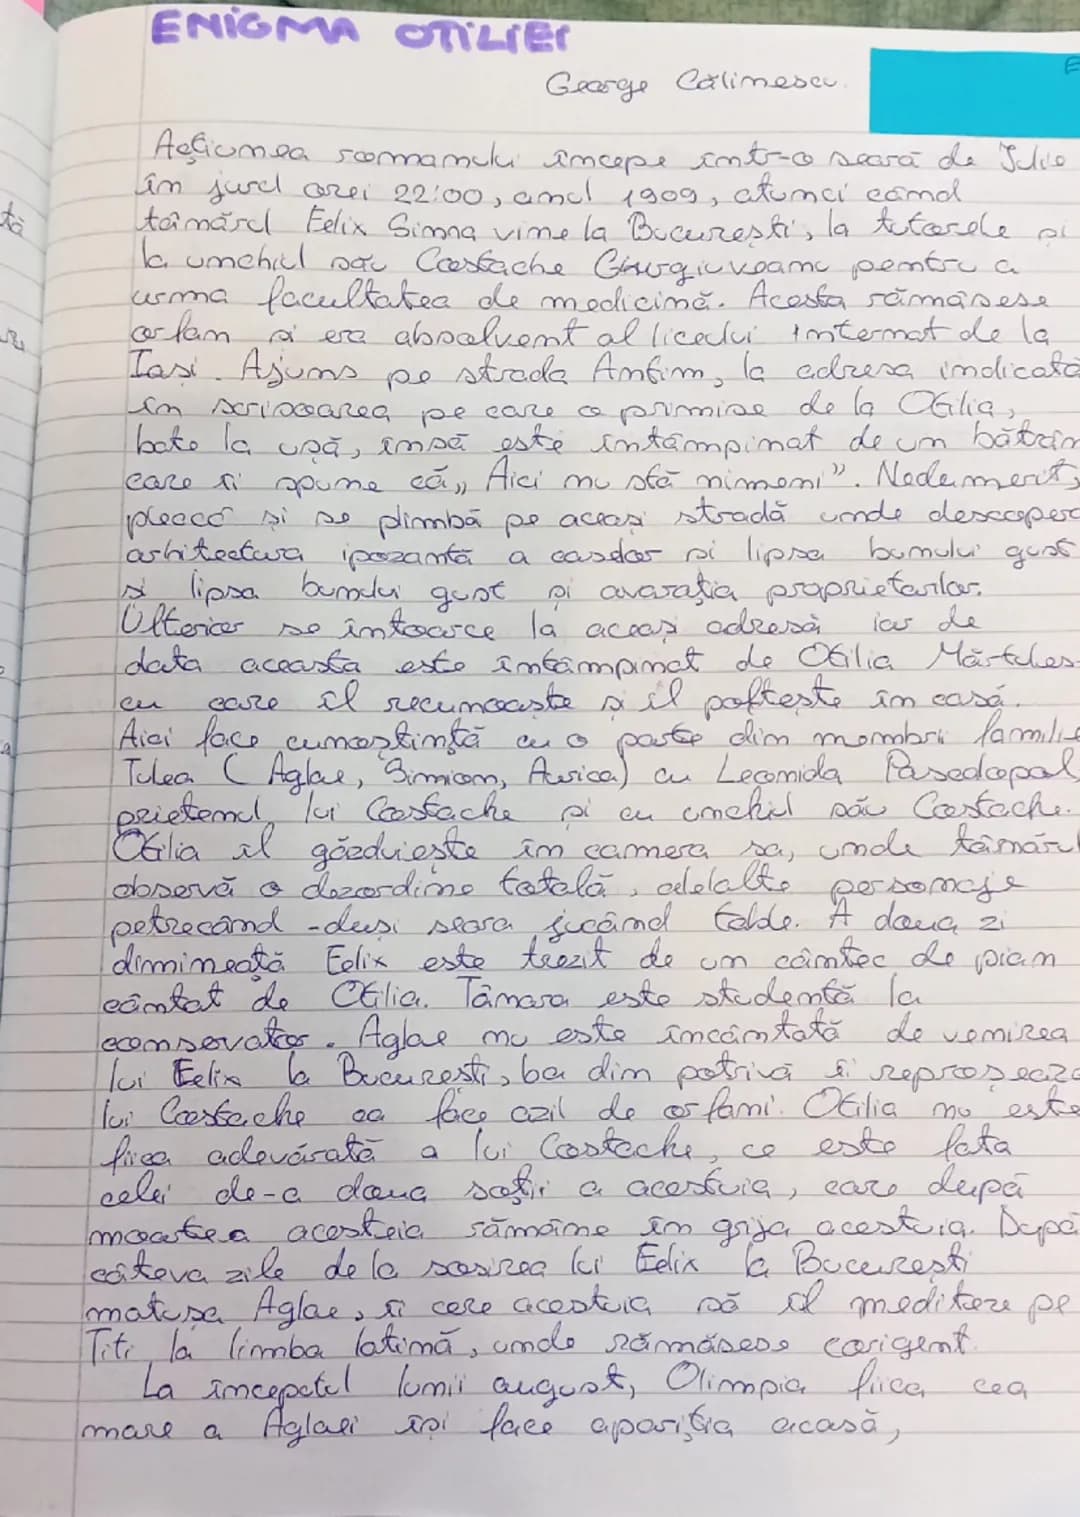 ENIGMA OTILIEI
George Călinescu.
Acțiunea romanului începe într-o seară de Iulie
în jurul orei 22:00, anul 1909, atunci când
tânărul Felix Simna vine la București, la tutorele și
la unchiul său Costache Giurgiuveanu pentru a
urma facultatea de medicină. Acesta rămăsese
orfan și era absolvent al liceului Internat de la
Iași. Ajuns pe strada Antim, la adresa indicată
în scrisoarea pe care o primise de la Otilia,
bate la ușă, însă este întâmpinat de un bătrân
care îi spune că „Aici nu stă nimeni”. Nedumerit,
pleacă și se plimbă pe aceași stradă unde descoperă
arhitectura ipozantă a caselor și lipsa bunului gust
și lipsa bunului gust și avarația proprietarilor.
Ulterior se întoarce la aceași adresă iar de
data aceasta este întâmpinat de Otilia Mărcules-
cu care îl recunoaște și îl poftește în casă.
Aici face cunoștință cu o parte din membrii familie
Tulea (Aglae, Simion, Aurica) cu Leonida Pascalopol,
prietenul lui Costache și cu unchiul său Costache.
Otilia îl găzduiește în camera sa, unde tânărul
observă o dezordine totală, celelalte personaje
petrecând -duși seara jucând table. A doua zi
dimineață Felix este trezit de un cântec de pian
cântat de Otilia. Tânara este studentă la
conservator. Aglae nu este încântată de venirea
lui Felix la București, ba din potrivă îi reproșează
lui Costache ca face azil de orfani. Otilia nu este
fiica adevărată a lui Costache, ce este fata
celei de-a doua soții a acestuia, care după
moartea acesteia rămâne în grija acestuia. După
câteva zile de la sosirea lui Felix la București
matușa Aglae, îi cere acestuia să îl mediteze pe
Titi la limba latină, unde rămăsese corigent.
La începutul lunii august, Olimpia fiica cea
mare a Aglaei își face apariția acasă,